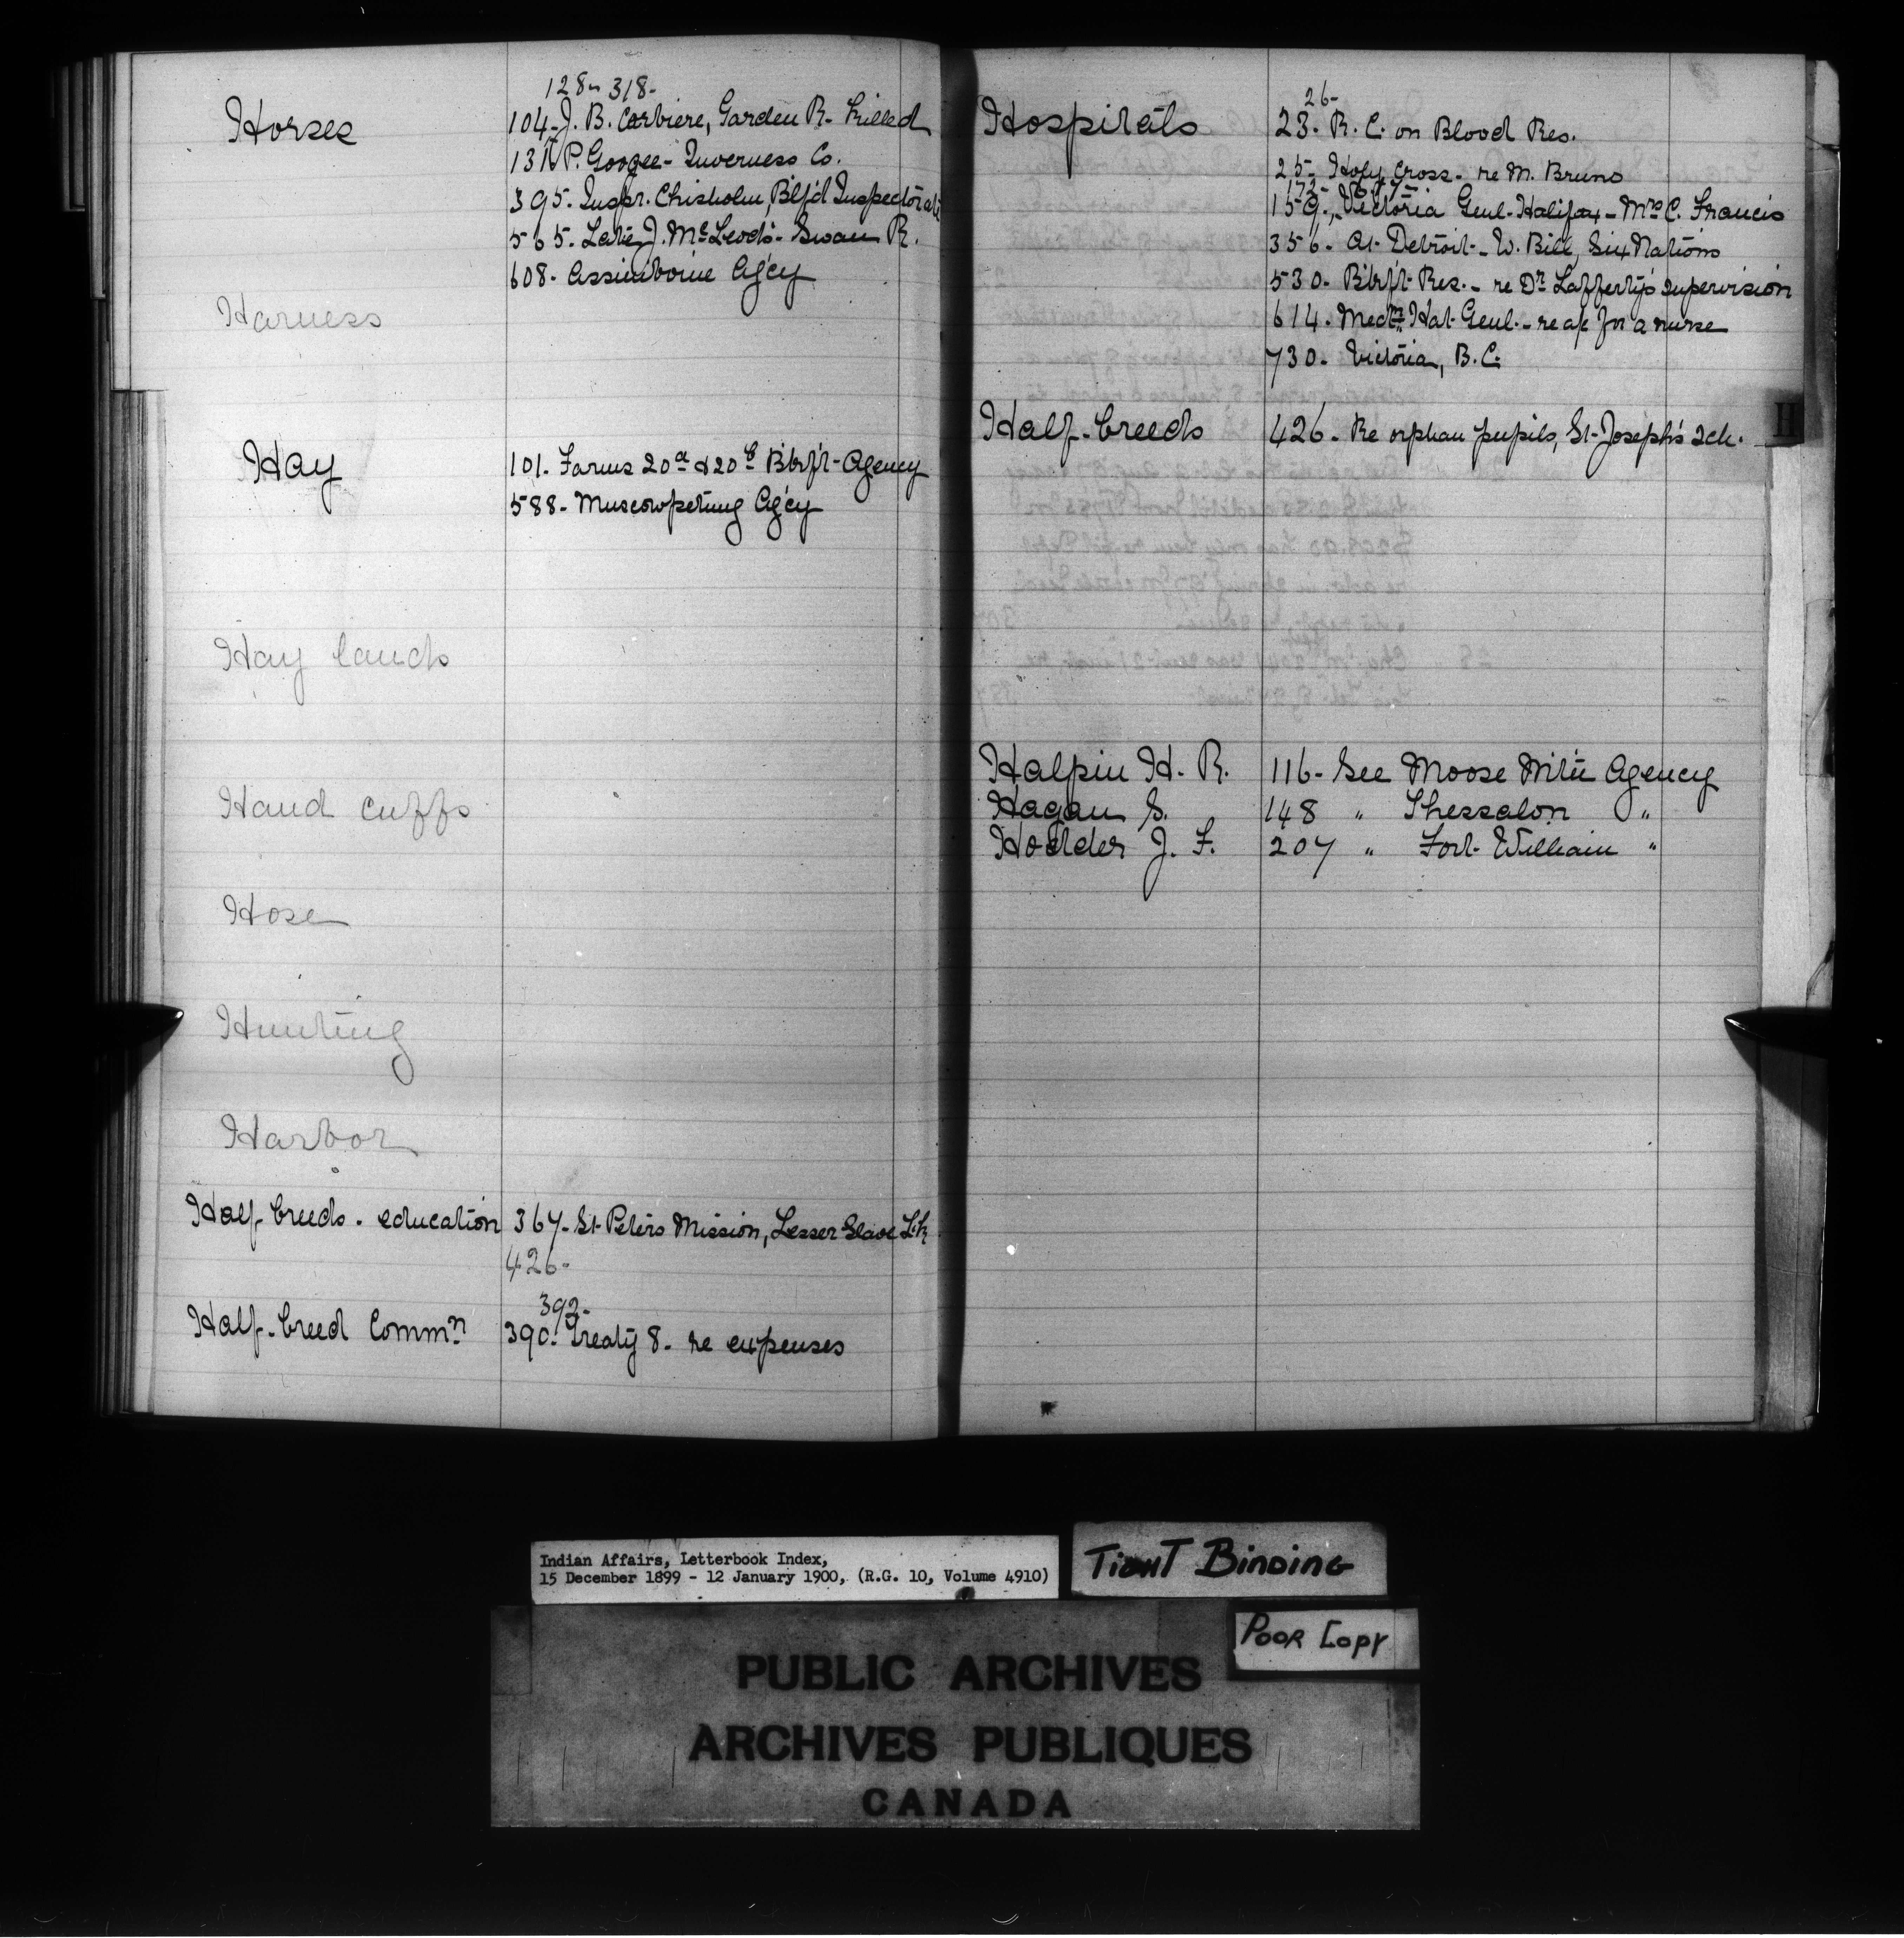 128- 318-
Horses 104- J. B. Corbiere, Garden R.- killed
131 P. Googoo- Inverness Co.
395. Inspr. Chisholm, Blf'd Inspectorate
565. Late J. McLeod's- Swan R.
608- Assiniboine Ag'cy
Harness
Hay 101. Farms 20a & 20b Blkf't- Agency
588- Muscowpetung Ag'cy
Hay lands
Hand cuffs
Hose
Hunting
Harbor
Half-breeds. education 367- St- Peters Mission, Lesser Slave Lk
426-
392-
Half-breed Commn 390- Treaty 8- re expenses
26-
Hospitals 23- R. C. on Blood Res.
25- Holy Cross- re M. Bruno
159., Victoria Genl- Halifax- Mrs C. Francis
356- At Detroit- W. Bill, Six Nations
530- Blkf't- Res.- re Dr Lafferty's supervision
614- Medne Hat- Genl.- re for a nurse
730- Victoria, B.C.
Half-breeds 426- Re orphan pupils, St- Joseph's sch.
H
Halpin H. R. 116- See Moose Mtn Agency
Hagan S. 148 " Thessalon "
Hodder J. F. 207 " Fort- William "
Indian Affairs, Letterbook Index,
15 December 1899 - 12 January 1900, (R.G. 10, Volume 4910)
TIGHT BINDING
POOR COPY
PUBLIC ARCHIVES
ARCHIVES PUBLIQUES
CANADA